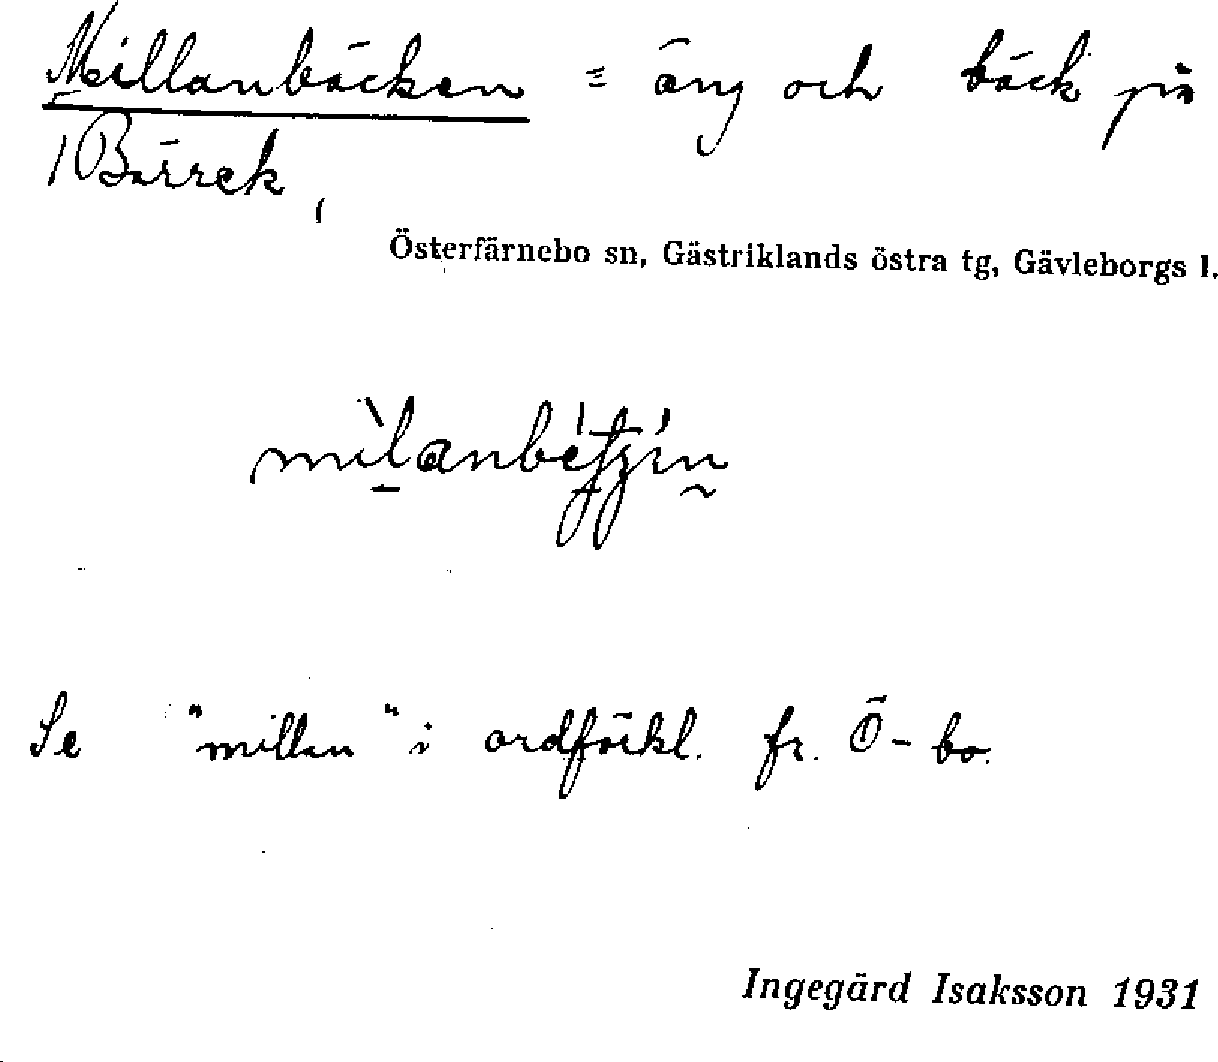 Millanbäcken = äng och bäck på
Bärrek,
Österfärnebo sn, Gästriklands östra tg, Gävleborgs l.
Se "millan" i ordförkl. fr. Ö-bo.
Ingegärd Isaksson 1931